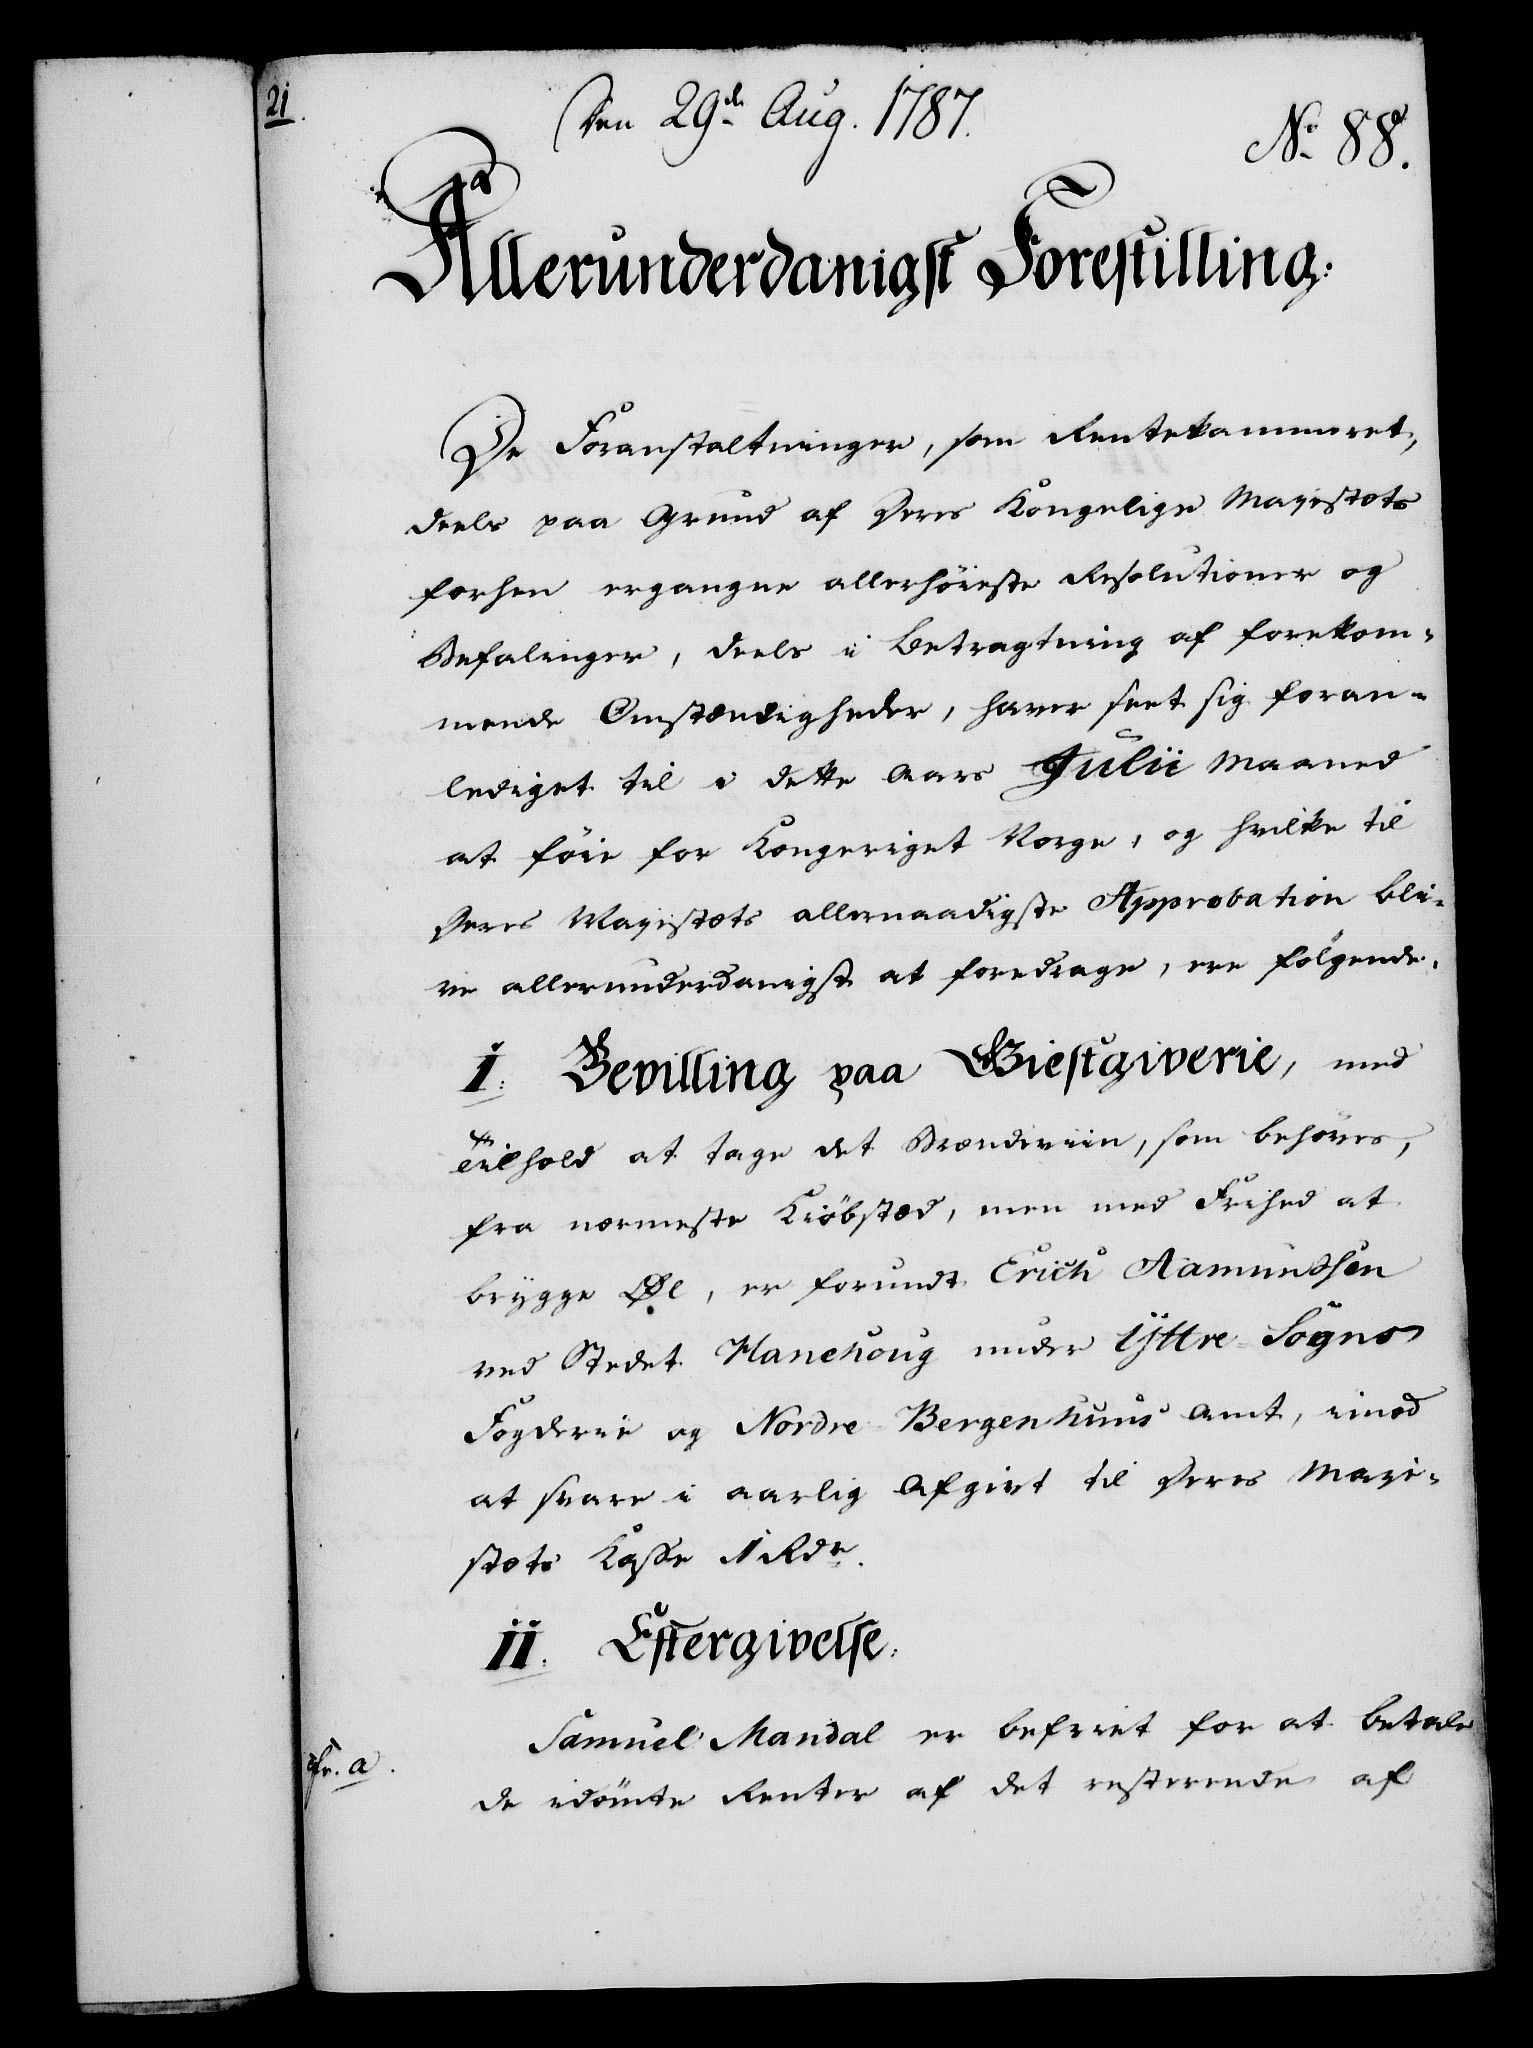 21.
Den 29de Aug. 1787.
No 88.
Allerunderdanigst Forestilling:
De Foranstaltninger, som Rentekammeret,
deels paa Grund af Deres Kongelige Majestæts
forhen ergangne allerhöieste Resolutioner og
Befalinger, deels i Betragtning af forekom-
mende Omstændigheder, haver seet sig foran-
lediget til i dette Aars Julii Maaned
at föie for Kongeriget Norge, og hvilke til
Deres Majestæts allernaadigste Approbation bli-
ve allerunderdanigst at foredrage, ere fölgende.
I. Bevilling paa Giestgiverie, med
Tilhold at tage det Brændeviin, som behöves,
fra nærmeste Kiöbstæd, men med Frihed at
brygge Øl, er forundt Erich Aamundsen
ved Stedet Hanehoug under Yttre-Sogns
Fogderie og Nordre-Bergenhuus Amt, imod
at svare i aarlig Afgivt til Deres Maje-
stæts Kasse 1 Rdr.
II. Eftergivelse:
Samuel Mandal er befriet for at betale
cfr. a.
de idömte Renter af det resterende af